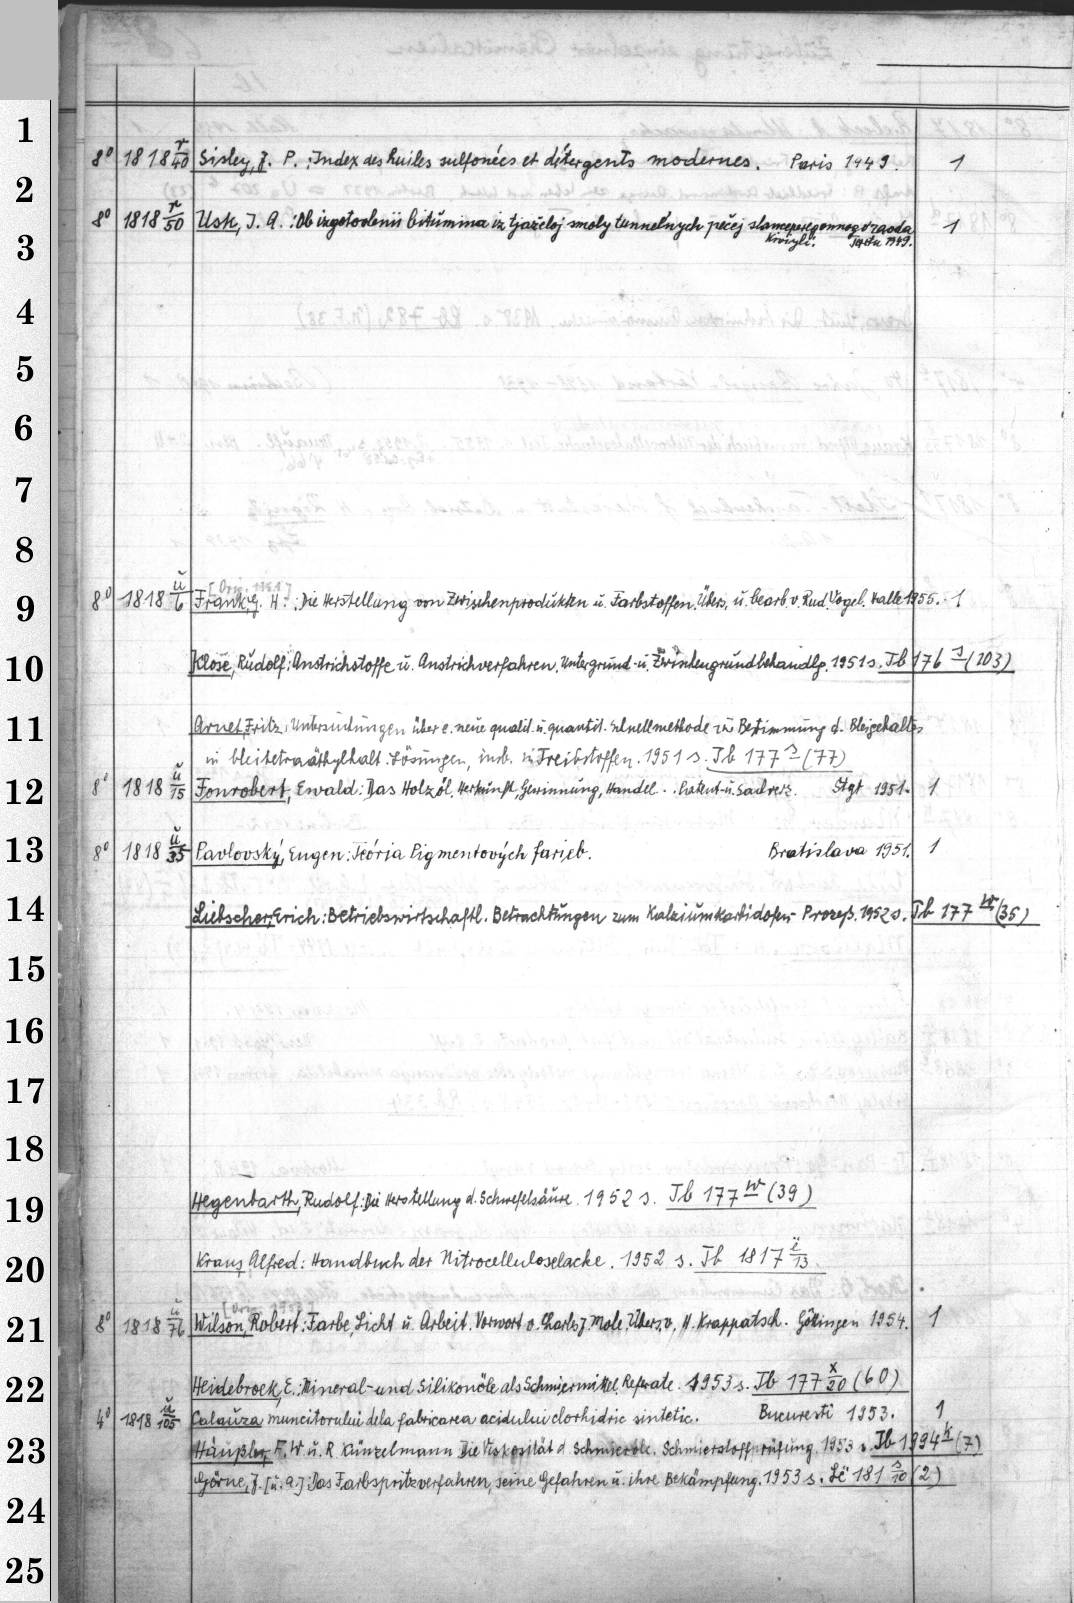 1
8° 1818 r/40 Sisley, J. P.: Index des huiles sulfonées et détergents modernes. Paris 1949. 1
2
8° 1818 r/50 Usk, I. A.: Ob izgotovlenii bitumina iz tjaželoj smoly tunnel'nych pečej slanceperegonnogo zavoda
3
Kiviyli. 1949.
4
5
6
7
8
[Orig. 1951]
9
8° 1818 ü/6 Frank, G. H.: Die Herstellung von Zwischenprodukten u. Farbstoffen. Übers. u. bearb. v. Rud. Vogel. Halle 1955. 1
10
Klose, Rudolf: Anstrichstoffe u. Anstrichverfahren. Untergrund- u. Zwischengrundbehandlg. 1951 s. Tb 176 s (203)
11
Arnet, Fritz: Untersuchungen über e. neue qualit. u. quantit. Schnellmethode zu Bestimmung d. Bleigehaltes
in bleitetraäthylhalt. Lösungen, insb. in Treibstoffen. 1951 s. Tb 177 s (77)
12
8° 1818 ü/15 Fonrobert, Ewald: Das Holzöl. Herkunft, Gewinnung, Handel. Patent- u. Sachverz. Stgt 1951. 1
13
8° 1818 ü/35 Pavlovský, Eugen: Teória Pigmentových farieb. Bratislava 1951. 1
14
Liebscher, Erich: Betriebswirtschaftl. Betrachtungen zum Kalziumkarbidofen-Prozeß. 1952 s. Tb 177 w (35)
15
16
17
18
19
Hegenbarth, Rudolf: Die Herstellung d. Schwefelsäure. 1952 s. Tb 177 w (39)
20
Kraus, Alfred: Handbuch der Nitrocelluloselacke. 1952 s. Tb 1817 ë/13.
21
8° 1818 ü/76 Wilson, Robert: Farbe, Licht u. Arbeit. Vorwort v. Charls J. Mole. Übers. v. H. Krappatsch. Göttingen 1954. 1
22
Heidebroek, E.: Mineral- und Silikonöle als Schmiermittel. Referate. 1953 s. Tb 177 x/20 (60)
4° 1818 ü/105 Calauza muncitorului dela fabricarea acidului clorhidric sintetic. Bucuresti 1953. 1
23
Häußler, F. W. u. R. Künzelmann Die Viskosität d. Schmieröle. Schmierstoffprüfung. 1953 s. Tb 1994 k (7)
Görne, J. [u. a.]: Das Farbspritzverfahren, seine Gefahren u. ihre Bekämpfung. 1953 s. Lë 181 s/10 (2)
24
25